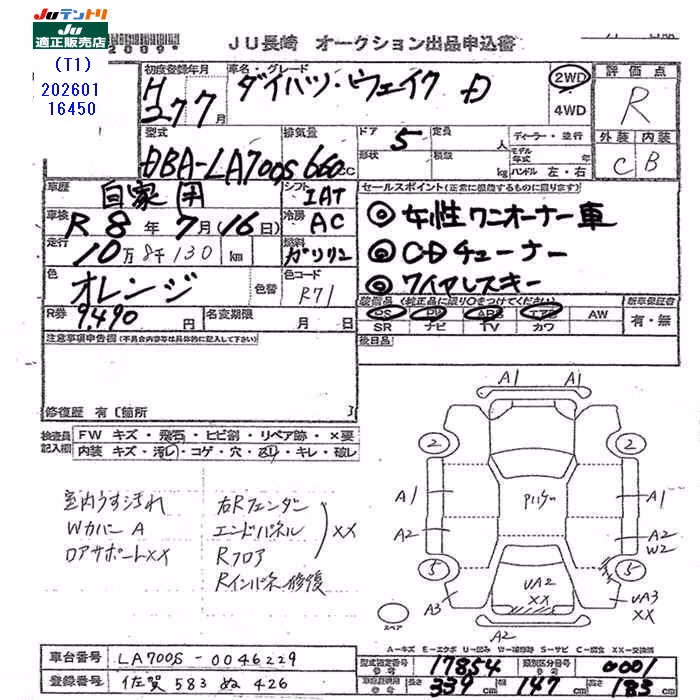 JUテントリ
JU
適正販売店
2009
(T1)
202601
16450
JU長崎 オークション出品申込書
初度登録年月 車名・グレード 評価点
H27 7月 ダイハツ・ウェイク D 2WD 4WD R
型式 排気量 ドア 定員 ディーラー・並行 外装 内装
DBA-LA700S 660cc 5 人 モデル年式 年
形状 積載 kg ハンドル 左・右 C B
車歴 自家用 シフト IAT セールスポイント(正常に機能するものに限ります)
車検 R 8年 7月(16日) 冷房 AC ◎女性ワンオーナー車
走行 10万8千130 km 燃料 ガソリン ◎CDチューナー
色 オレンジ 色替 色コード R71 ◎ワイヤレスキー
装備品(純正品に限り○をつけてください) 新車保証書
R券 9,490円 名変期限 月 日 PS PW ABS エアB AW 有・無
SR ナビ TV カワ
注意事項申告欄(不具合内容等は具体的に記入して下さい) 後日品
修復歴 有〔箇所 〕
検査員記入欄 FW キズ・飛石・ヒビ割・リペア跡・×要
内装 キズ・汚レ・コゲ・穴・ヌリ・キレ・破レ
室内うす汚れ 右Rフェンダー
Wカバー A エンドパネル XX
ロアサポートXX Rフロア
Rインパネ修復
A1 A1
2 2
A1 A1
A2 A2
W2
5 5
UA2
XX
A3 UA3
XX
A2
スペア
A-キズ E-エクボ U-凹み W-補修跡 S-サビ C-腐食 XX-交換済
車台番号 LA700S-0046229 型式指定番号 17854 類別区分番号 0001
登録番号 佐賀 583 ぬ 426 339cm 147cm 183cm